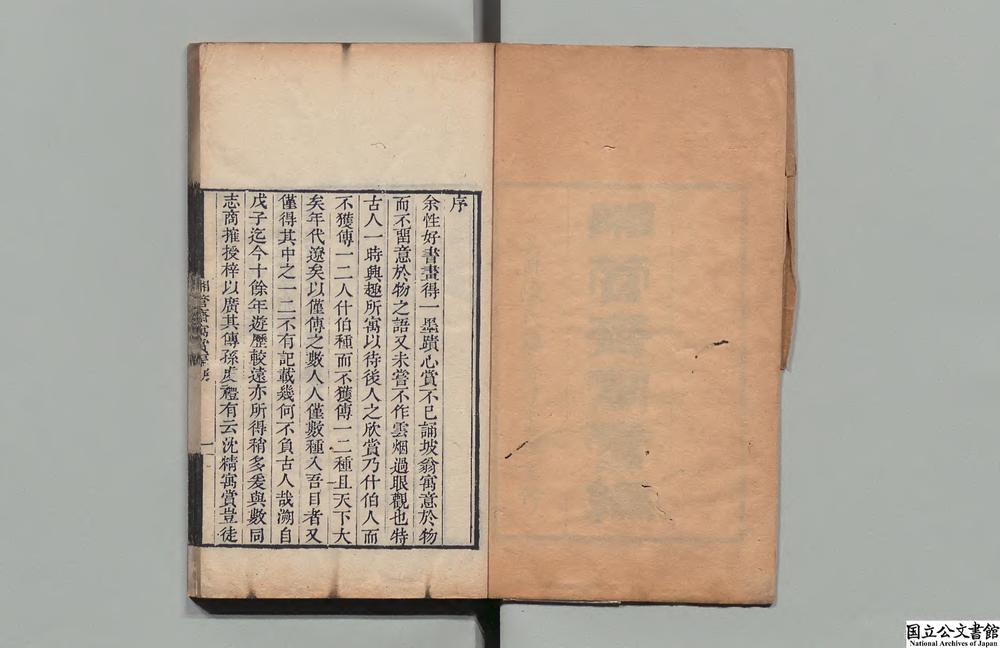 序
余性好書畫得一墨蹟心賞不已誦坡翁寓意於物
而不畱意於物之語又未嘗不作雲烟過眼觀也特
古人一時興趣所寓以待後人之欣賞乃什伯人而
不獲傳一二人什伯種而不獲傳一二種且天下大
矣年代遼矣以僅傳之數人人僅數種入吾目者又
僅得其中之一二不有記載幾何不負古人哉溯自
戊子迄今十餘年遊歷較遠亦所得稍多爰與數同
志商搉授梓以廣其傳孫虔禮有云沈精寓賞豈徒
一
国立公文書館
National Archives of Japan